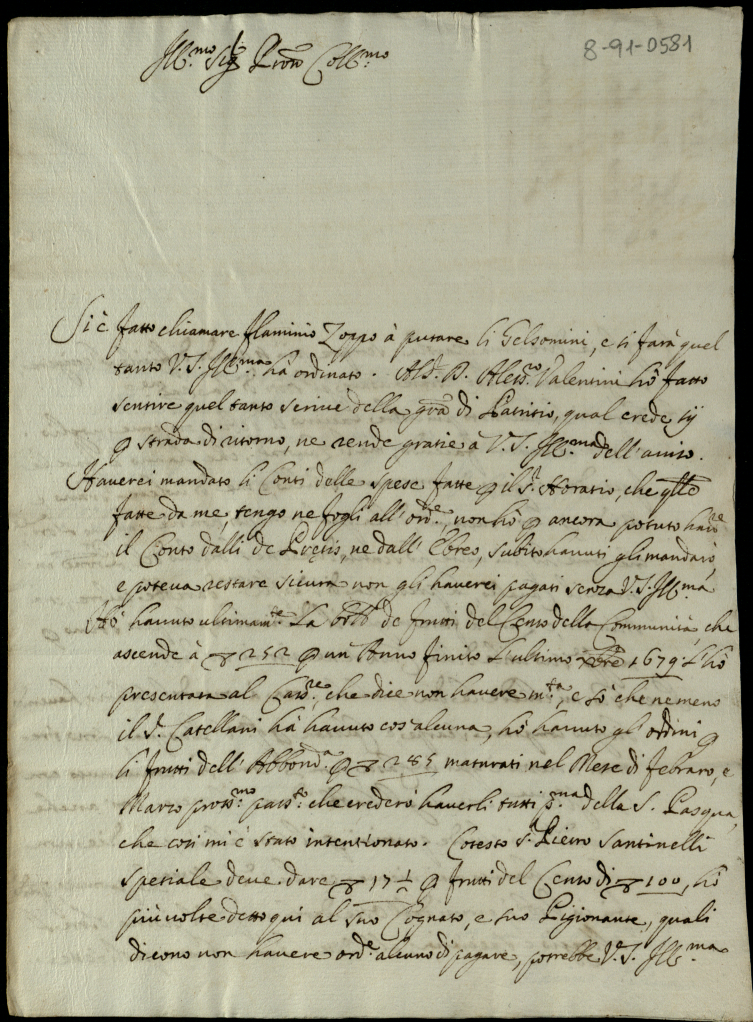 8-91-0581
Ill.mo Sig.r Pron Coll.mo
Si è fatto chiamare Flaminio Zoppo à putare li Gelsomini, e si farà quel
tanto V.S. Ill.ma hà ordinato. Al d. Aless.o Valentini hò fatto
sentire quel tanto scrive della di Patritio, qual crede sij
p strada di ritorno, ne rende gratie à V.S. Ill.ma dell'aviso.
Haverei mandato li Conti delle spese fatte p il S.r Horatio, che
fatte da me, tengo ne fogli all'ord.e, non hò p ancora potuto
il Conto dalli de Pretis, ne dall'Ebreo, subito havuti gli mandarò,
e poteva restare sicura non gli haverei pagati senza V.S. Ill.ma
Hò havuto ultimam.te la de frutti del Censo della Communità, che
ascende à 252 p un Anno finito l'ultimo Xbre 1679. l'hò
presentata al che dice non havere m.ta, e sò che nemeno
il S. Catellani hà havuto cos'alcuna, hò havuto gl'ordini p
li frutti dell'Abbond.a p 285 maturati nel Mese di febraro, e
Marzo pross.mo pass.to che crederò haverli tutti p.ma della S. Pasqua,
che così mi è stato intentionato. Cotesto S. Pietro Santinelli
spetiale deve dare 17 1/2 p frutti del Censo di 100, hò
più volte detto qui al suo Cognato, e suo Pigionante, quali
dicono non havere ord.e alcuno di pagare, potrebbe V.S. Ill.ma